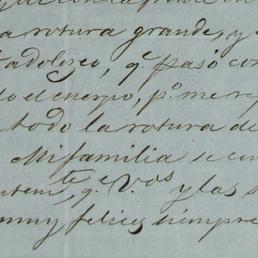 a rotura grande, y
adolesco, q.e pasó con
do el cuerpo, p.o me re
todo la rotura de
Mi familia se en
te, q.e V.os y las
muy felices siempre